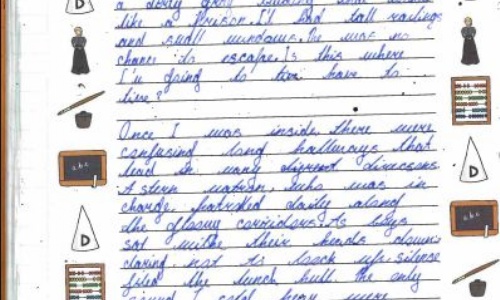 a dirty grey building that looked
like a Prison. It had tall railings
and small windows. There was no
chance to escape. Is this where
I'm going to have to
live?
Once I was inside there were
confusing long hallways that
lead in many different direcsons
A stern matron, who was in
charge, patroled daily along
the gloomy corridors. As boys
sat withe their heads down
daring not to look up. silence
filed the lunch hall the only
sound I cold hear were
D
abc
D
D
abc